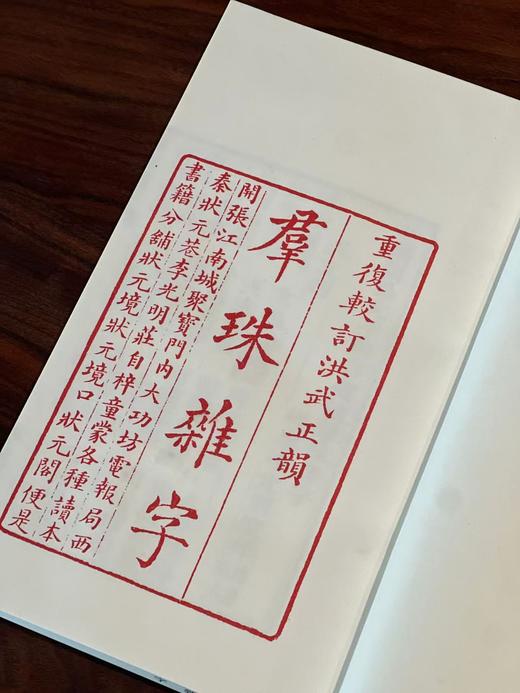 重復較訂洪武正韻
羣珠雜字
開張江南城聚寶門內大功坊電報局西
秦狀元巷李光明莊自梓童蒙各種讀本
書籍分舖狀元境狀元境口狀元閣便是